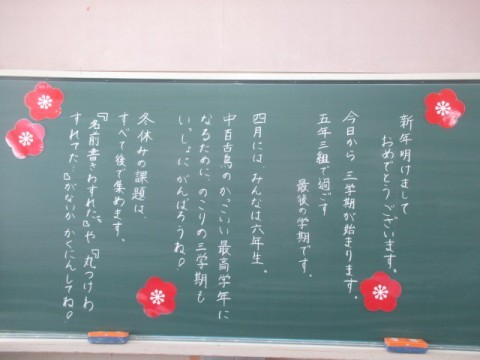 新年明けまして
おめでとうございます。
今日から 三学期が始まります。
五年三組で過ごす
最後の学期です。
四月には、みんなは六年生。
中百舌鳥のかっこいい最高学年に
なるために、のこりの三学期も
いっしょにがんばろうね!
冬休みの課題は、
すべて後で集めます。
『名前書きわすれた』や『丸つけわ
すれてた…』がないか かくにんしてね!